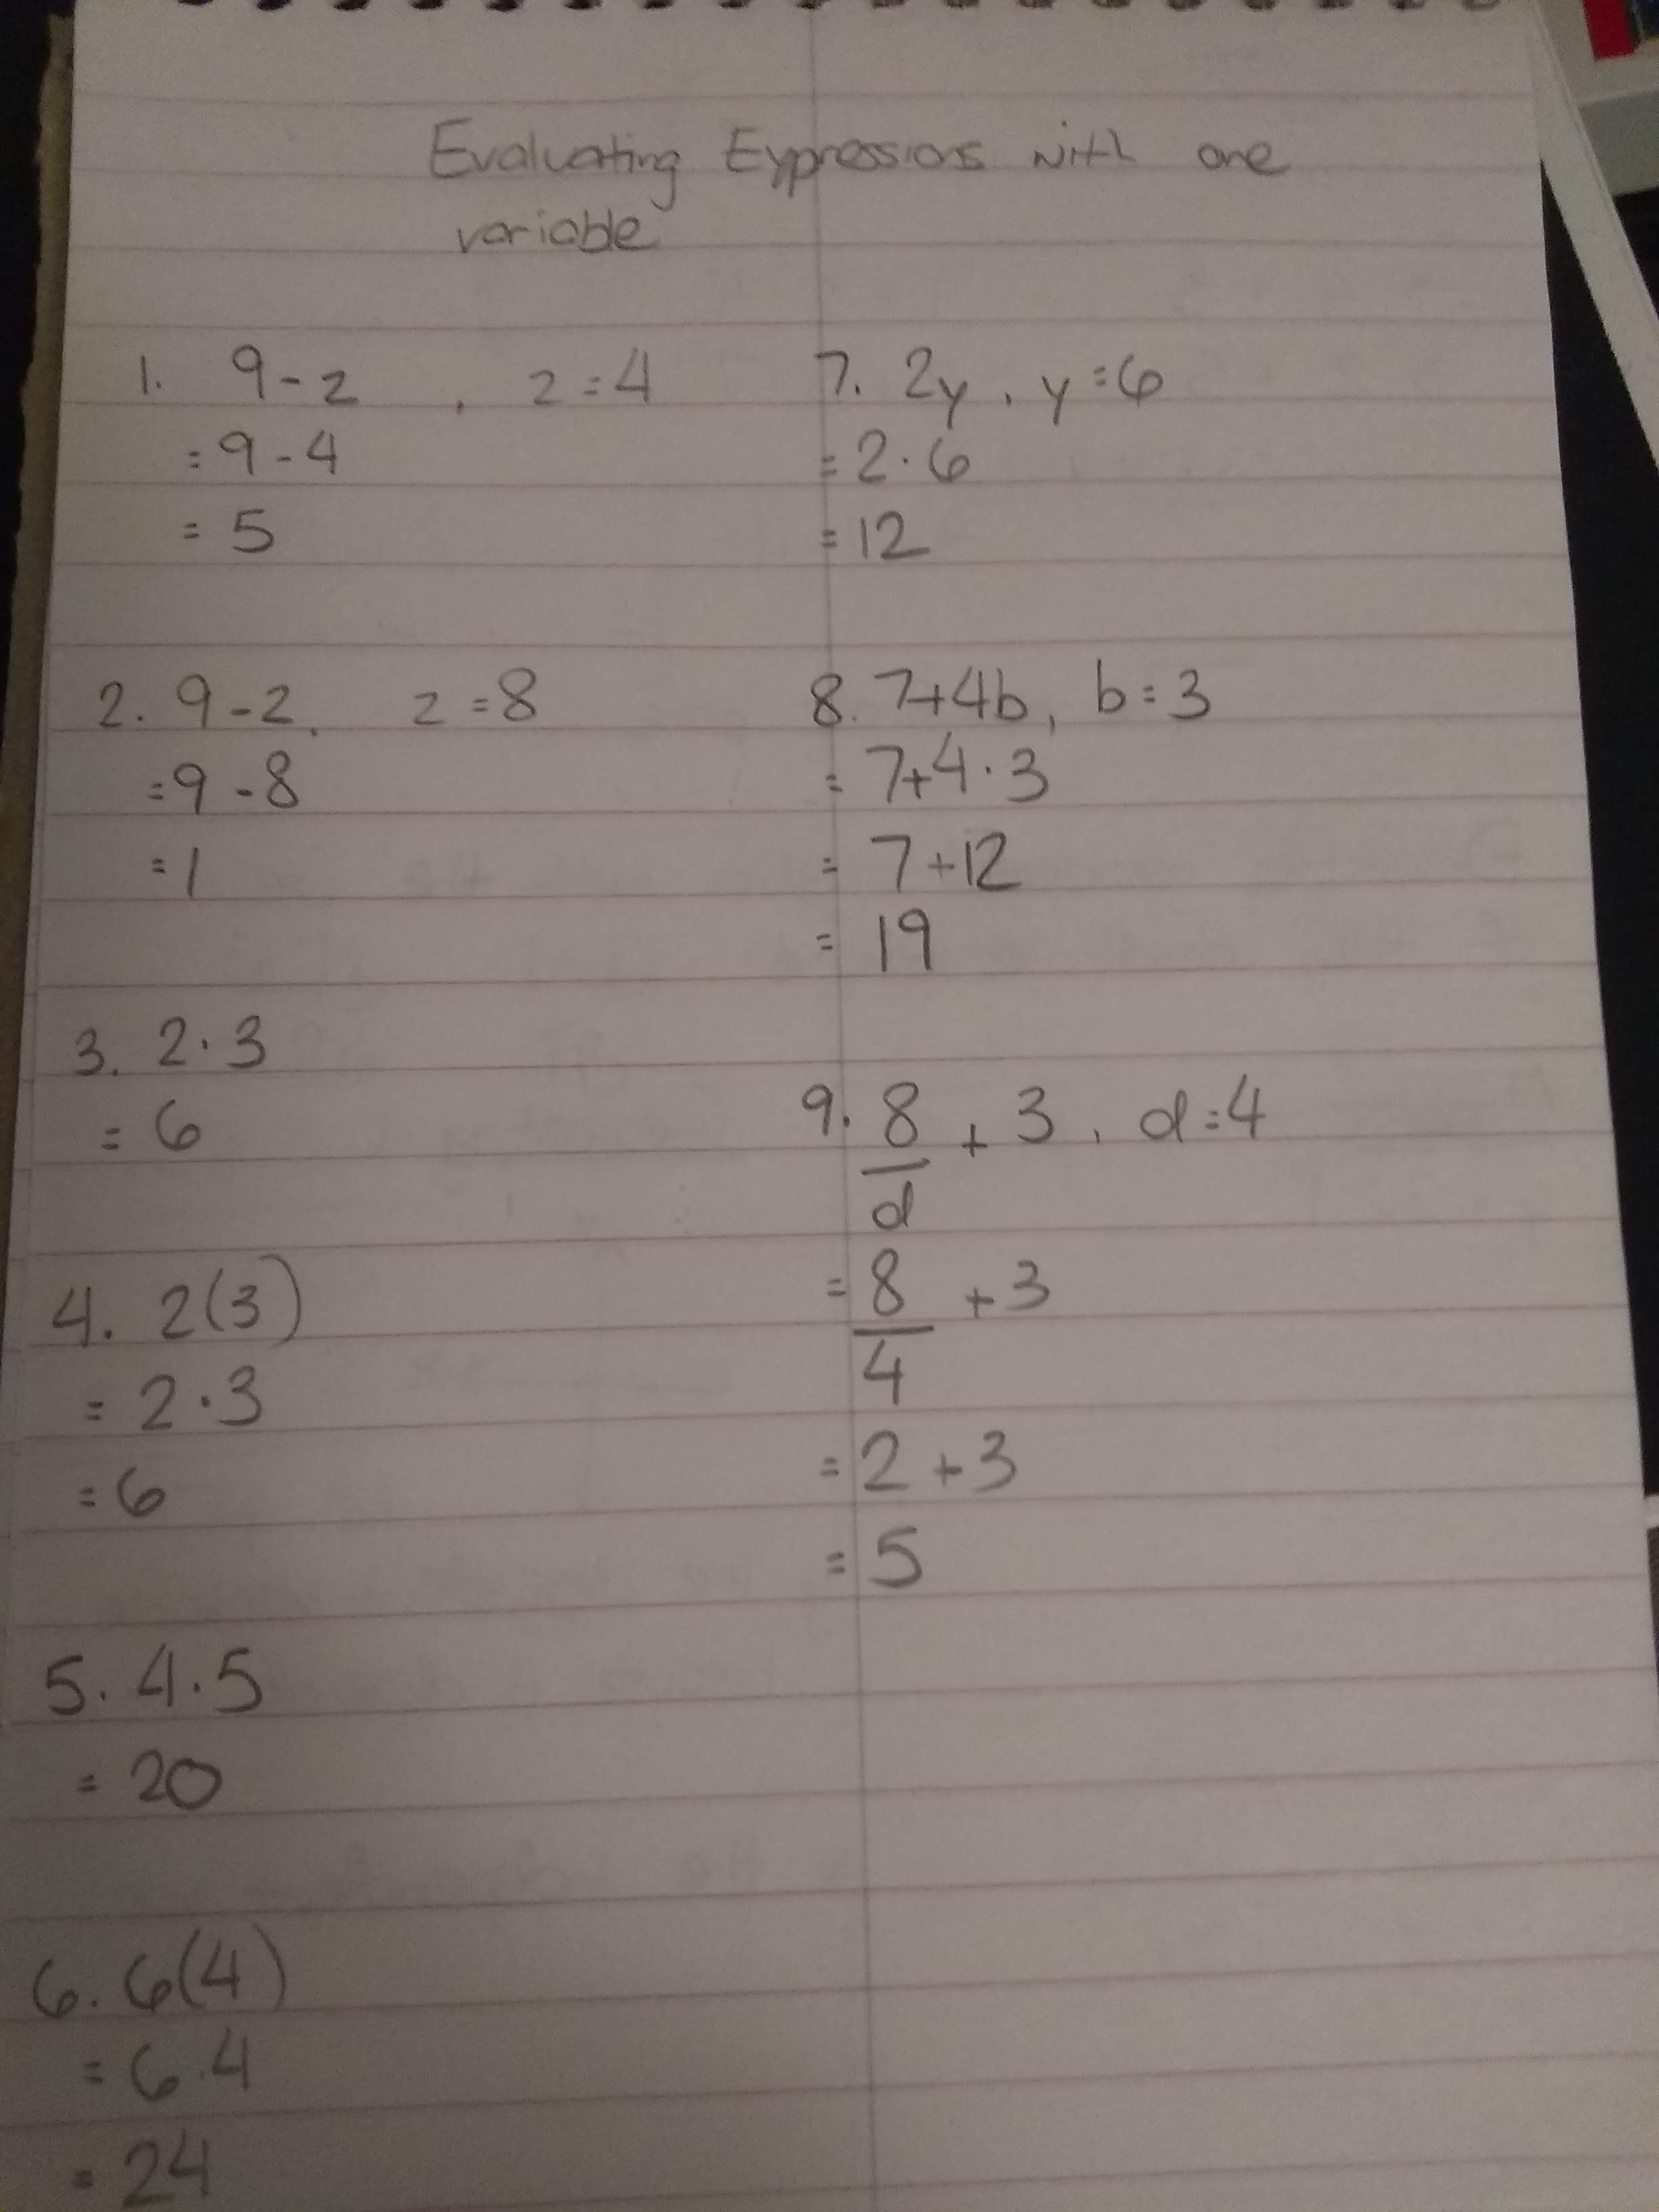 Evaluating Expressions with one
variable
1. 9-z , z=4
=9-4
= 5
2. 9-z, z=8
=9-8
=1
3. 2·3
= 6
4. 2(3)
= 2·3
=6
5. 4·5
= 20
6. 6(4)
= 6·4
= 24
7. 2y, y=6
=2·6
=12
8. 7+4b, b=3
= 7+4·3
= 7+12
= 19
9. 8/d + 3, d=4
= 8/4 +3
= 2+3
= 5